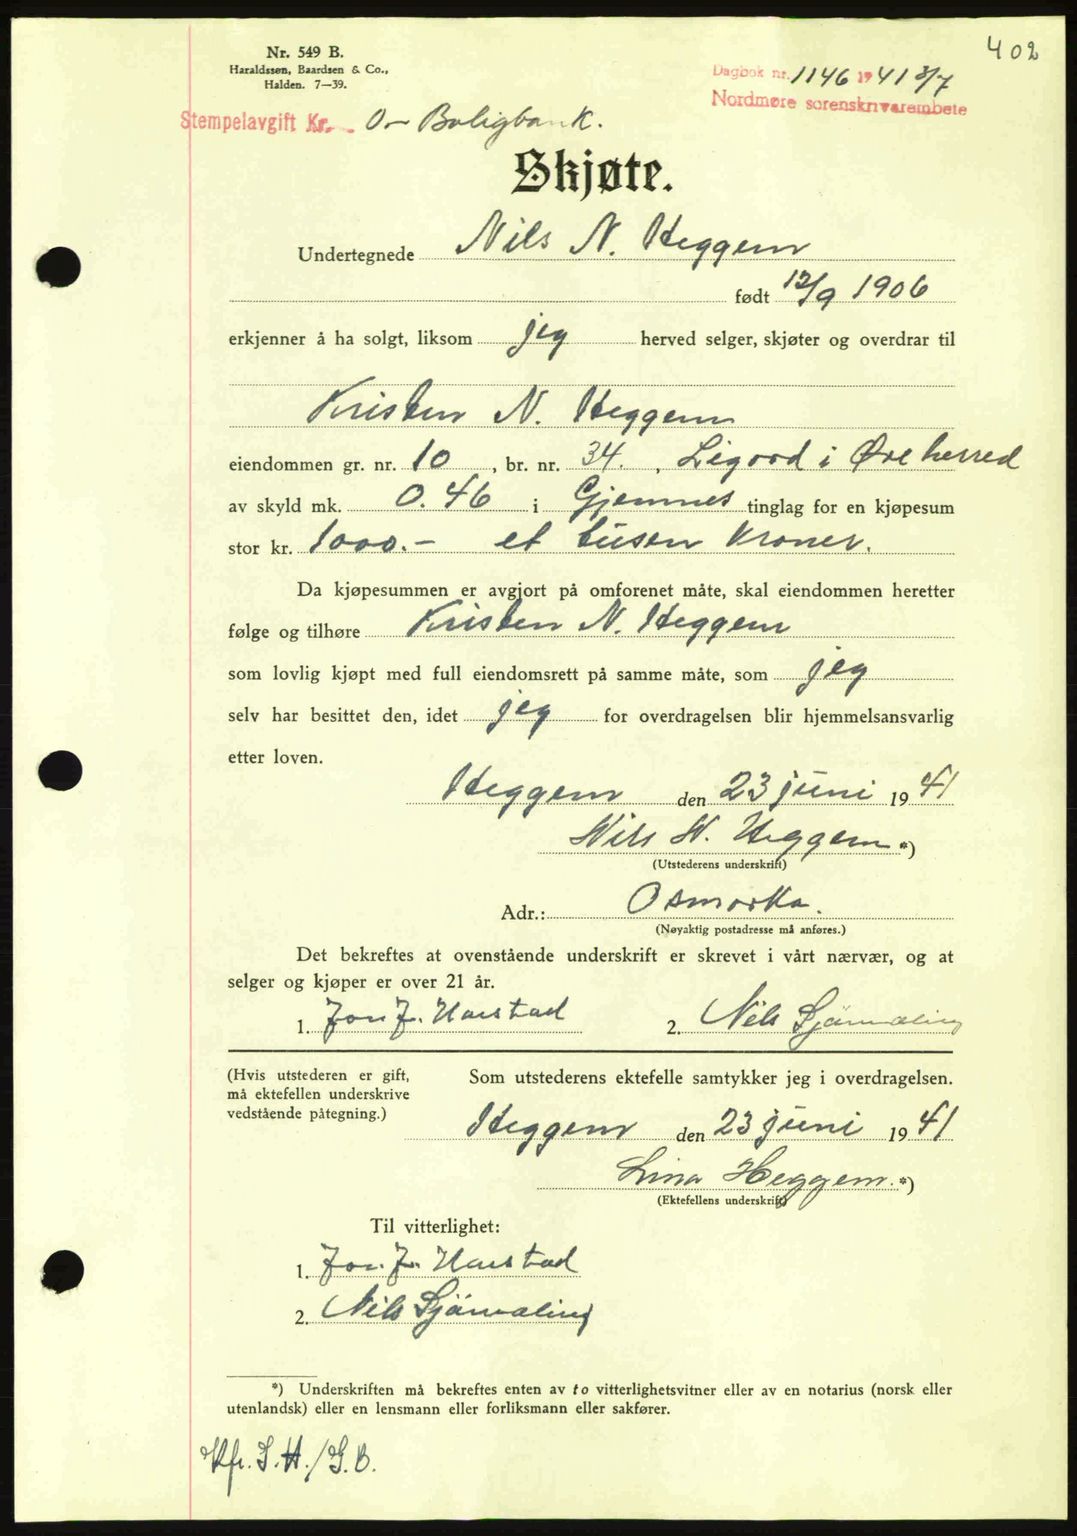 402
Nr. 549 B.
Haraldssen, Baardsen & Co.,
Halden. 7—39.
Dagbok nr. 1146 1941 3/7
Nordmøre sorenskriverembete
Stempelavgift Kr. 0- Boligbank.
Skjøte.
Undertegnede Nils N. Heggem
født 12/9 1906
erkjenner å ha solgt, liksom jeg herved selger, skjøter og overdrar til
Kristen N. Heggem
eiendommen gr. nr. 10, br. nr. 34., Ligord i Øre herred
av skyld mk. 0.46 i Gjemnes tinglag for en kjøpesum
stor kr. 1000.- et tusen Kroner.
Da kjøpesummen er avgjort på omforenet måte, skal eiendommen heretter
følge og tilhøre Kristen N. Heggem
som lovlig kjøpt med full eiendomsrett på samme måte, som jeg
selv har besittet den, idet jeg for overdragelsen blir hjemmelsansvarlig
etter loven.
Heggem den 23 juni 1941
Nils N. Heggem *)
(Utstederens underskrift)
Adr.: Osmarka.
(Nøyaktig postadresse må anføres.)
Det bekreftes at ovenstående underskrift er skrevet i vårt nærvær, og at
selger og kjøper er over 21 år.
1. Jon J. Harstad 2. Nils
(Hvis utstederen er gift, Som utstederens ektefelle samtykker jeg i overdragelsen.
må ektefellen underskrive
vedstående påtegning.)
Heggem den 23 juni 1941
Lina Heggem. *)
(Ektefellens underskrift)
Til vitterlighet:
1. Jon J. Harstad
2. Nils
*) Underskriften må bekreftes enten av to vitterlighetsvitner eller av en notarius (norsk eller
utenlandsk) eller en lensmann eller forliksmann eller sakfører.
Kfr. S.H./G.B.